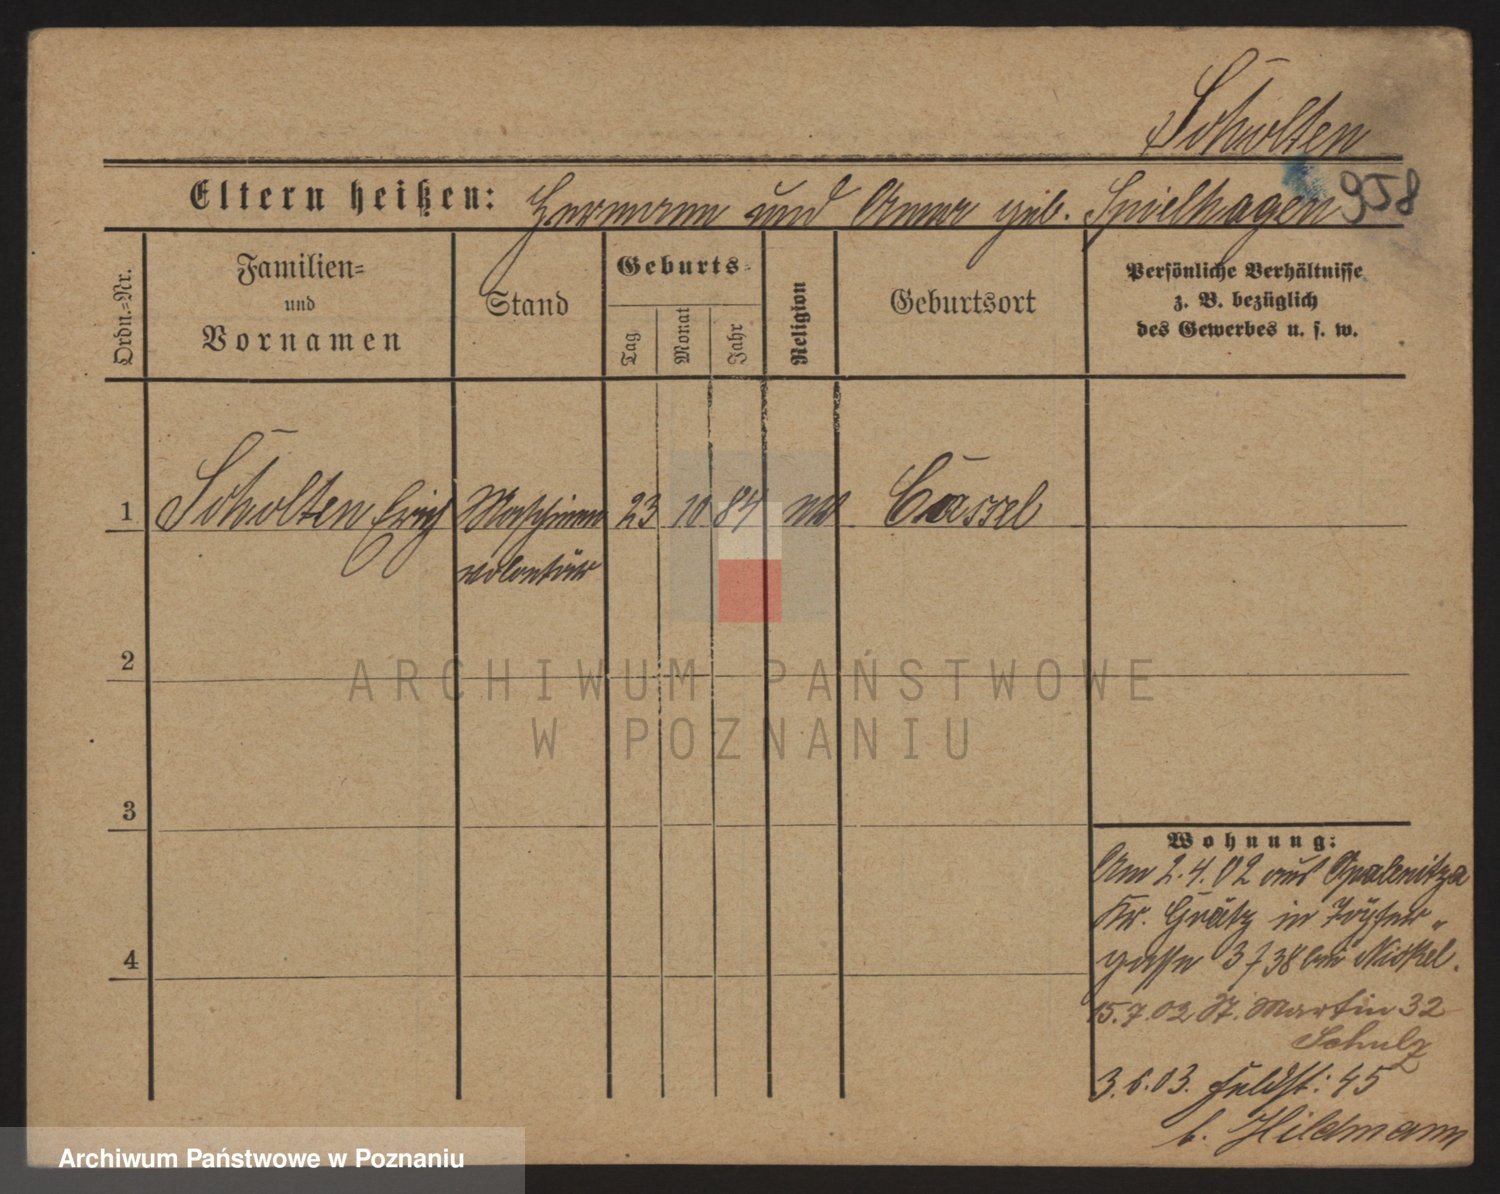 Scholten
Eltern heißen: Hermann und Anna geb. Spielhagen 958
Ordn.=Nr.
Familien=
und
Vornamen
Stand
Geburts=
Tag
Monat
Jahr
Religion
Geburtsort
Persönliche Verhältnisse
z. B. bezüglich
des Gewerbes u. s. w.
1 Scholten Erich Maschinen 23 10 84 Cassel
volontär
2
3
4
Wohnung:
Am 2.4.02 aus Opalenitza
Kr. Grätz in Töpfer„
gasse 3 38 bei Niskel.
15.7.02 St. Martin 32
Schulz
3.6.03. Feldst: 45
b. Hildmann
ARCHIWUM PAŃSTWOWE
W POZNANIU
Archiwum Państwowe w Poznaniu